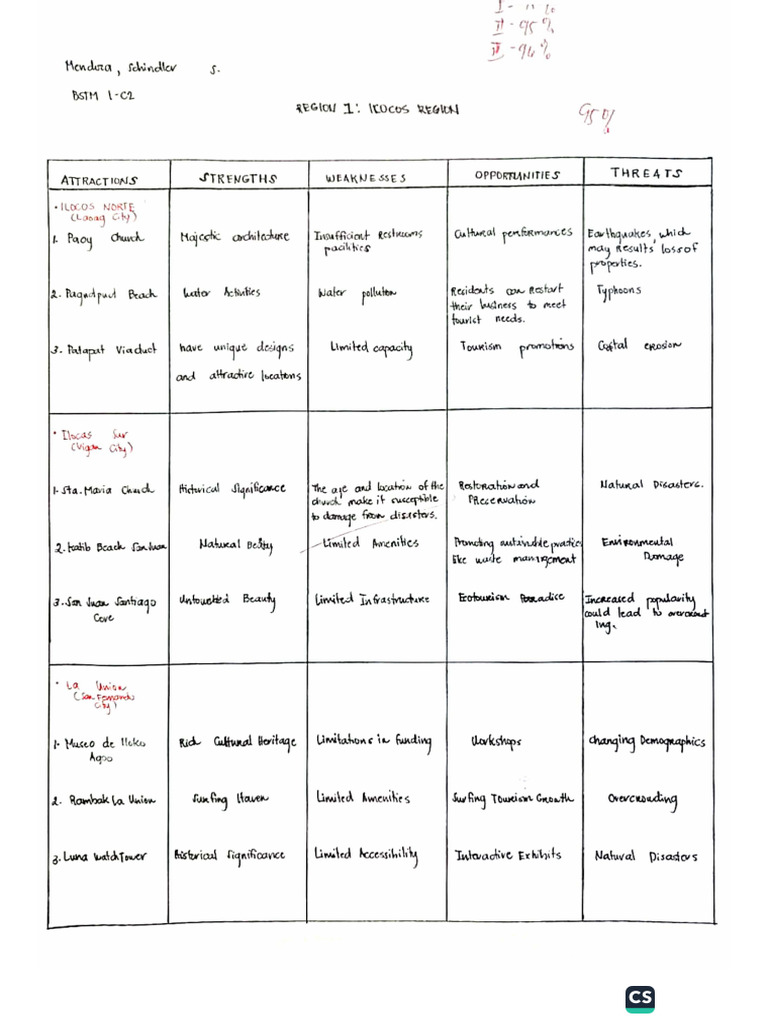 II - 95%
III - 94%
Mendoza, Schindler S.
BSTM 1-C2
REGION 1: ILOCOS REGION
95%
ATTRACTIONS STRENGTHS WEAKNESSES OPPORTUNITIES THREATS
• ILOCOS NORTE
(Laoag City)
1. Paoy Church Majestic architecture Insufficient Restrooms Cultural performances Earthquakes, which
facilities may results loss of
properties.
2. Pagudpud Beach Water Activities Water pollution Recidents can Restart Typhoons
their business to meet
tourist needs.
3. Patapat Viaduct have unique designs Limited capacity Tourism promotions Costal erosion
and attractive locations
• Ilocas Sur
(Vigan City)
1. Sta. Maria Church Historical Significance The age and location of the Restoration and Natural Disasters.
church make it susceptible Preservation
to damage from disasters.
2. Katib Beach San Juan Natural Beaty Limited Amenities Promoting sustainable practice Environmental
like waste management Damage
3. San Juan Santiago Untoutted Beauty Limited Infrastructure Ecotourism Paradise Increased popularity
Cove could lead to overcrowd
ing.
• La Union
(San Fernando
City)
1. Museo de Iloko Rich Cultural Heritage Limitations in funding Workshops Changing Demographics
Agoo
2. Rambak La Union Surfing Haven Limited Amenities Surfing Tourism Growth Overcrowding
3. Luna Watch Tower Historical Significance Limited Accessibility Interactive Exhibits Natural Disasters
CS